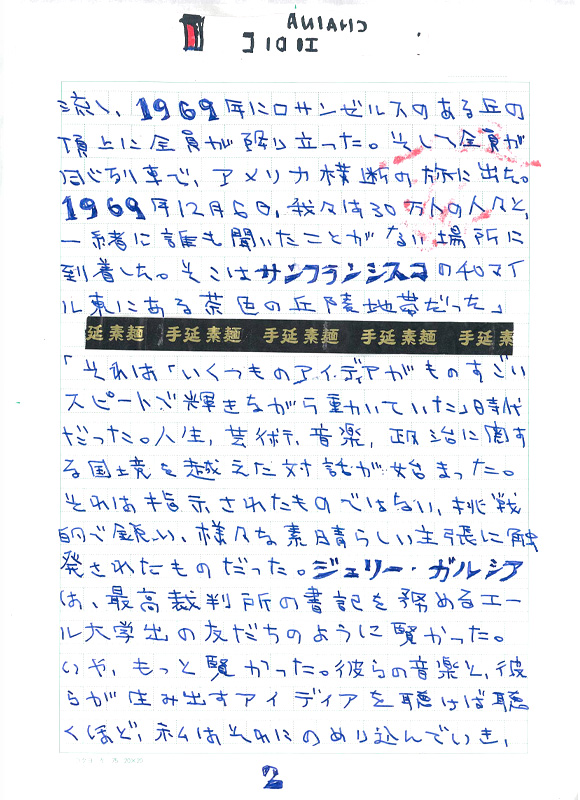 流し、1969年にロサンゼルスのある丘の
頂上に全員が降り立った。そして全員が
同じ列車で、アメリカ横断の旅に出た。
1969年12月6日、我々は30万人の人々と、
一緒に誰も聞いたことがない場所に
到着した。そこはサンフランシスコの40マイ
ル東にある茶色の丘陵地帯だった」
延素麺 手延素麺 手延素麺 手延素麺 手延素
「それは「いくつものアイディアがものすごい
スピードで輝きながら動いていた」時代
だった。人生、芸術、音楽、政治に関す
る国境を越えた対話が始まった。
それは指示されたものではない、挑戦
的で鋭い、様々な素晴らしい主張に触
発されたものだった。ジェリー・ガルシア
は、最高裁判所の書記を務めるエー
ル大学出の友だちのように賢かった。
いや、もっと賢かった。彼らの音楽と、彼
らが生み出すアイディアを聴けば聴
くほど、私はそれにのめり込んでいき、
2